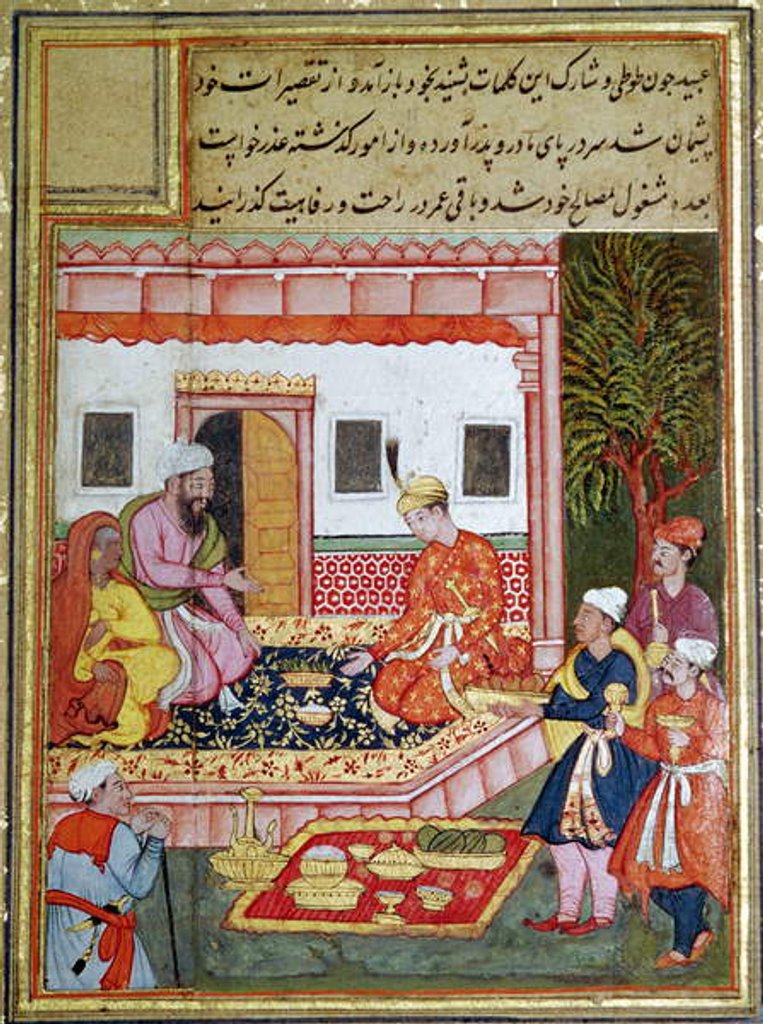 عبید چون طوطی و شارک این کلمات بشنید بخود باز آمد و از تقصیرات خود
پشیمان شد سر در پای مادر و پذر آورده و از امور کذشته عذر خواست
بعده مشغول مصالح خود شد و باقی عمر در راحت و رفاهیت کذرانید